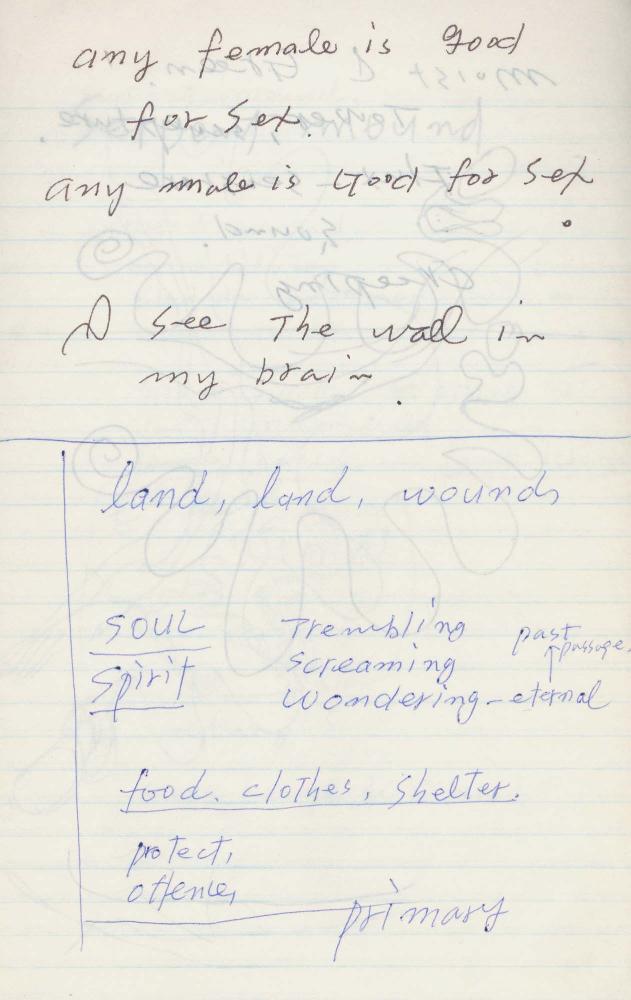 any female is good
for sex.
any male is Good for sex
.
I see The wall in
my brain.
land, land, wounds
SOUL Trembling past
passage.
Spirit Screaming
wondering - eternal
food. clothes, shelter.
protect,
offence,
primary